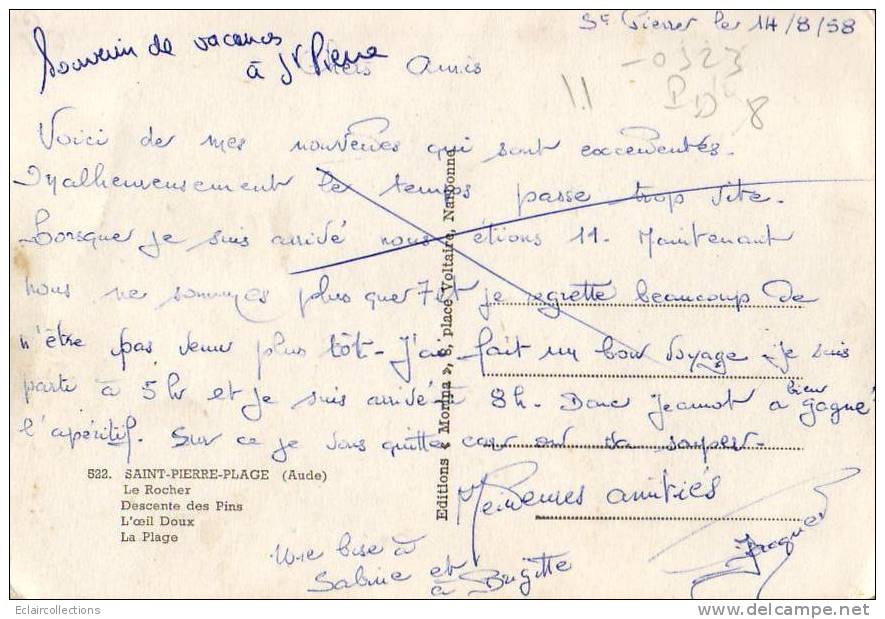 St Pierre le 14/8/58
Souvenir de vacances
à St Pierre
Chers Amis
-0323
11
8
Voici de mes nouvelles qui sont excellentes.
Malheureusement le temps passe trop vite.
Lorsque je suis arrivé nous étions 11. Maintenant
nous ne sommes plus que 7 et je regrette beaucoup de
n'être pas venu plus tôt - J'ai fait un bon voyage je suis
parti à 5 hr et je suis arrivé à 8h. Donc Jeannot a bien gagné
l'apéritif. Sur ce je vous quitte car on va souper.
Meilleures amitiés
Jacques
Une bise à
Sabine et
à Brigitte
522. SAINT-PIERRE-PLAGE (Aude)
Le Rocher
Descente des Pins
L'œil Doux
La Plage
Editions « Monina », 8, place Voltaire, Narbonne
Eclaircollections
delcampe.net